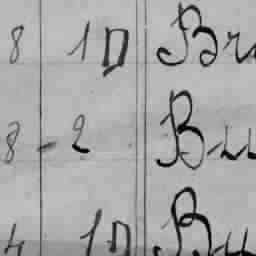 8 10 Br
8 - 2 Bu
4 10 Bu